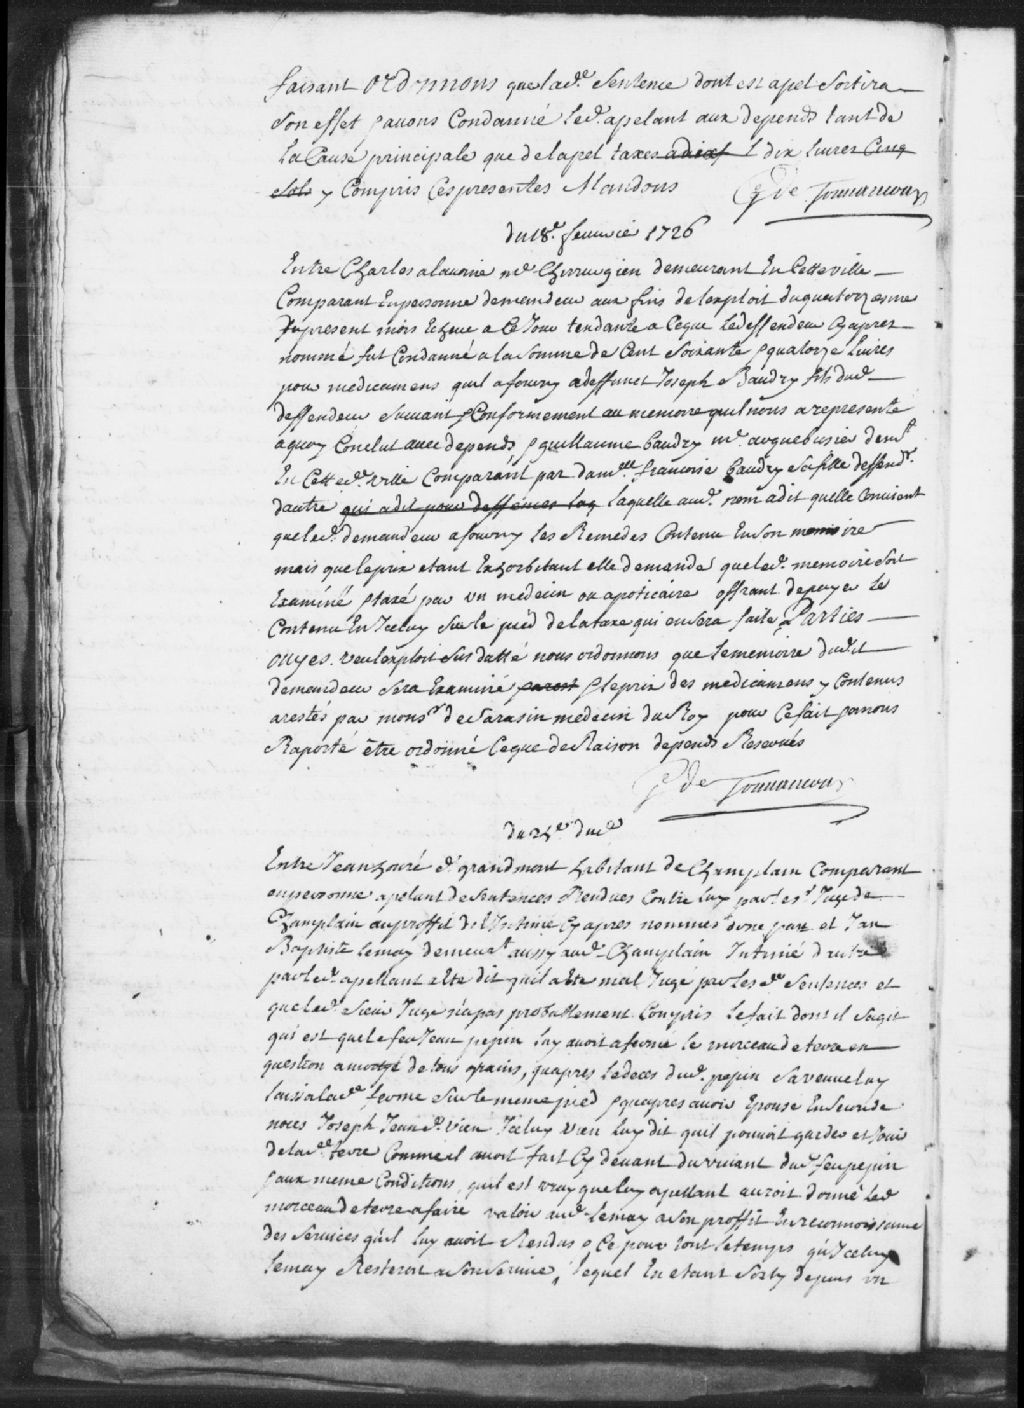 faisant ordonnons que lad.e Sentence dont est apel Sortira
Son effet & auons Condamné led. apelant aux depends tant de
La Cause principale que de lapel taxes a dix L dix Liures Cinq
Sols y Compris Ces presentes Mandons G de Tonnancour
du 18.e feuurie 1726
Entre Charles alauoine m.e Chirurgien demeurant En Cette ville
Comparant En personne demandeur aux fins de lexploit du quatorzesme
du present mois Echue a Ce Jour tendante a Ceque Le deffendeur Cy apres
nommé fut Condamné a la Somme de Cent Soixante & quatorze Liures
pour medicamens quil a fourny a deffunct Joseph Baudry fils dud.
deffendeur Suiuant & Conformement au memoire quil nous a representé
a quoy Conclut auec depends, & guillaume Baudry m.e arquebusier dem.t
En Cette d. ville Comparant par dam.lle francoise Baudry Sa fille deffend.r
dautre qui a dit pour deffences laq Laquelle aud. nom a dit quelle Conuient
que led. demandeur a fourny Les Remedes Contenu En Son memoire
mais que le prix etant Exorbitant elle demande que led. memoire Soit
Examiné & taxé par vn medecin ou apoticaire offrant de payer Le
Contenu En Iceluy Sur le pied de la taxe qui en Sera faite, Parties
ouyes. veu lexploit Sus datté nous ordonnons que Le memoire dudit
demandeur Sera Examiné & le prix des medicamens y Contenus
arestés par mons.r de Sarasin medecin du Roy pour Ce fait & a nous
Raporté être ordonné Ceque de Raison depends Reserués
G de Tonnancour
du 25.e dud.
Entre Jean Houré d.t grandmont habitant de Champlain Comparant
en personne apelant de Sentences Rendues Contre Luy par Le S.r Juge de
Champlain au proffit de lIntimé Cy apres nommés dune part et Jean
Baptiste Lemay demeur.t aussy aud. Champlain Intimé dautre
par led. apellant a Ete dit quil a Ete mal Jugé par Les d.e Sentences et
que led. Sieur Juge na pas probablement Compris Le fait dont il Sagit
qui est que le feu Jean pepin luy auoit afermé le morceau de terre en
question a moityé de tous grains, quapres Le deces dud. pepin Sa veuue luy
laissa lad.e ferme Sur le meme pied & quapres auoir Epousé En Seconde
noces Joseph Jean d. vien Iceluy vien luy dit quil pouuoit garder et Jouir
de lad.e terre Comme il auoit fait Cy deuant du viuant dud. feu pepin
& aux meme Conditions, quil est vray que luy apellant auroit donné Led.
morceau de terre a faire valoir aud. Lemay a Son proffit En reconnoissance
des Seruices quil luy auoit Rendus & Ce pour tout Le temps quIceluy
Lemay Resteroit a Son Seruice, Lequel En etant Sorty depuis vn